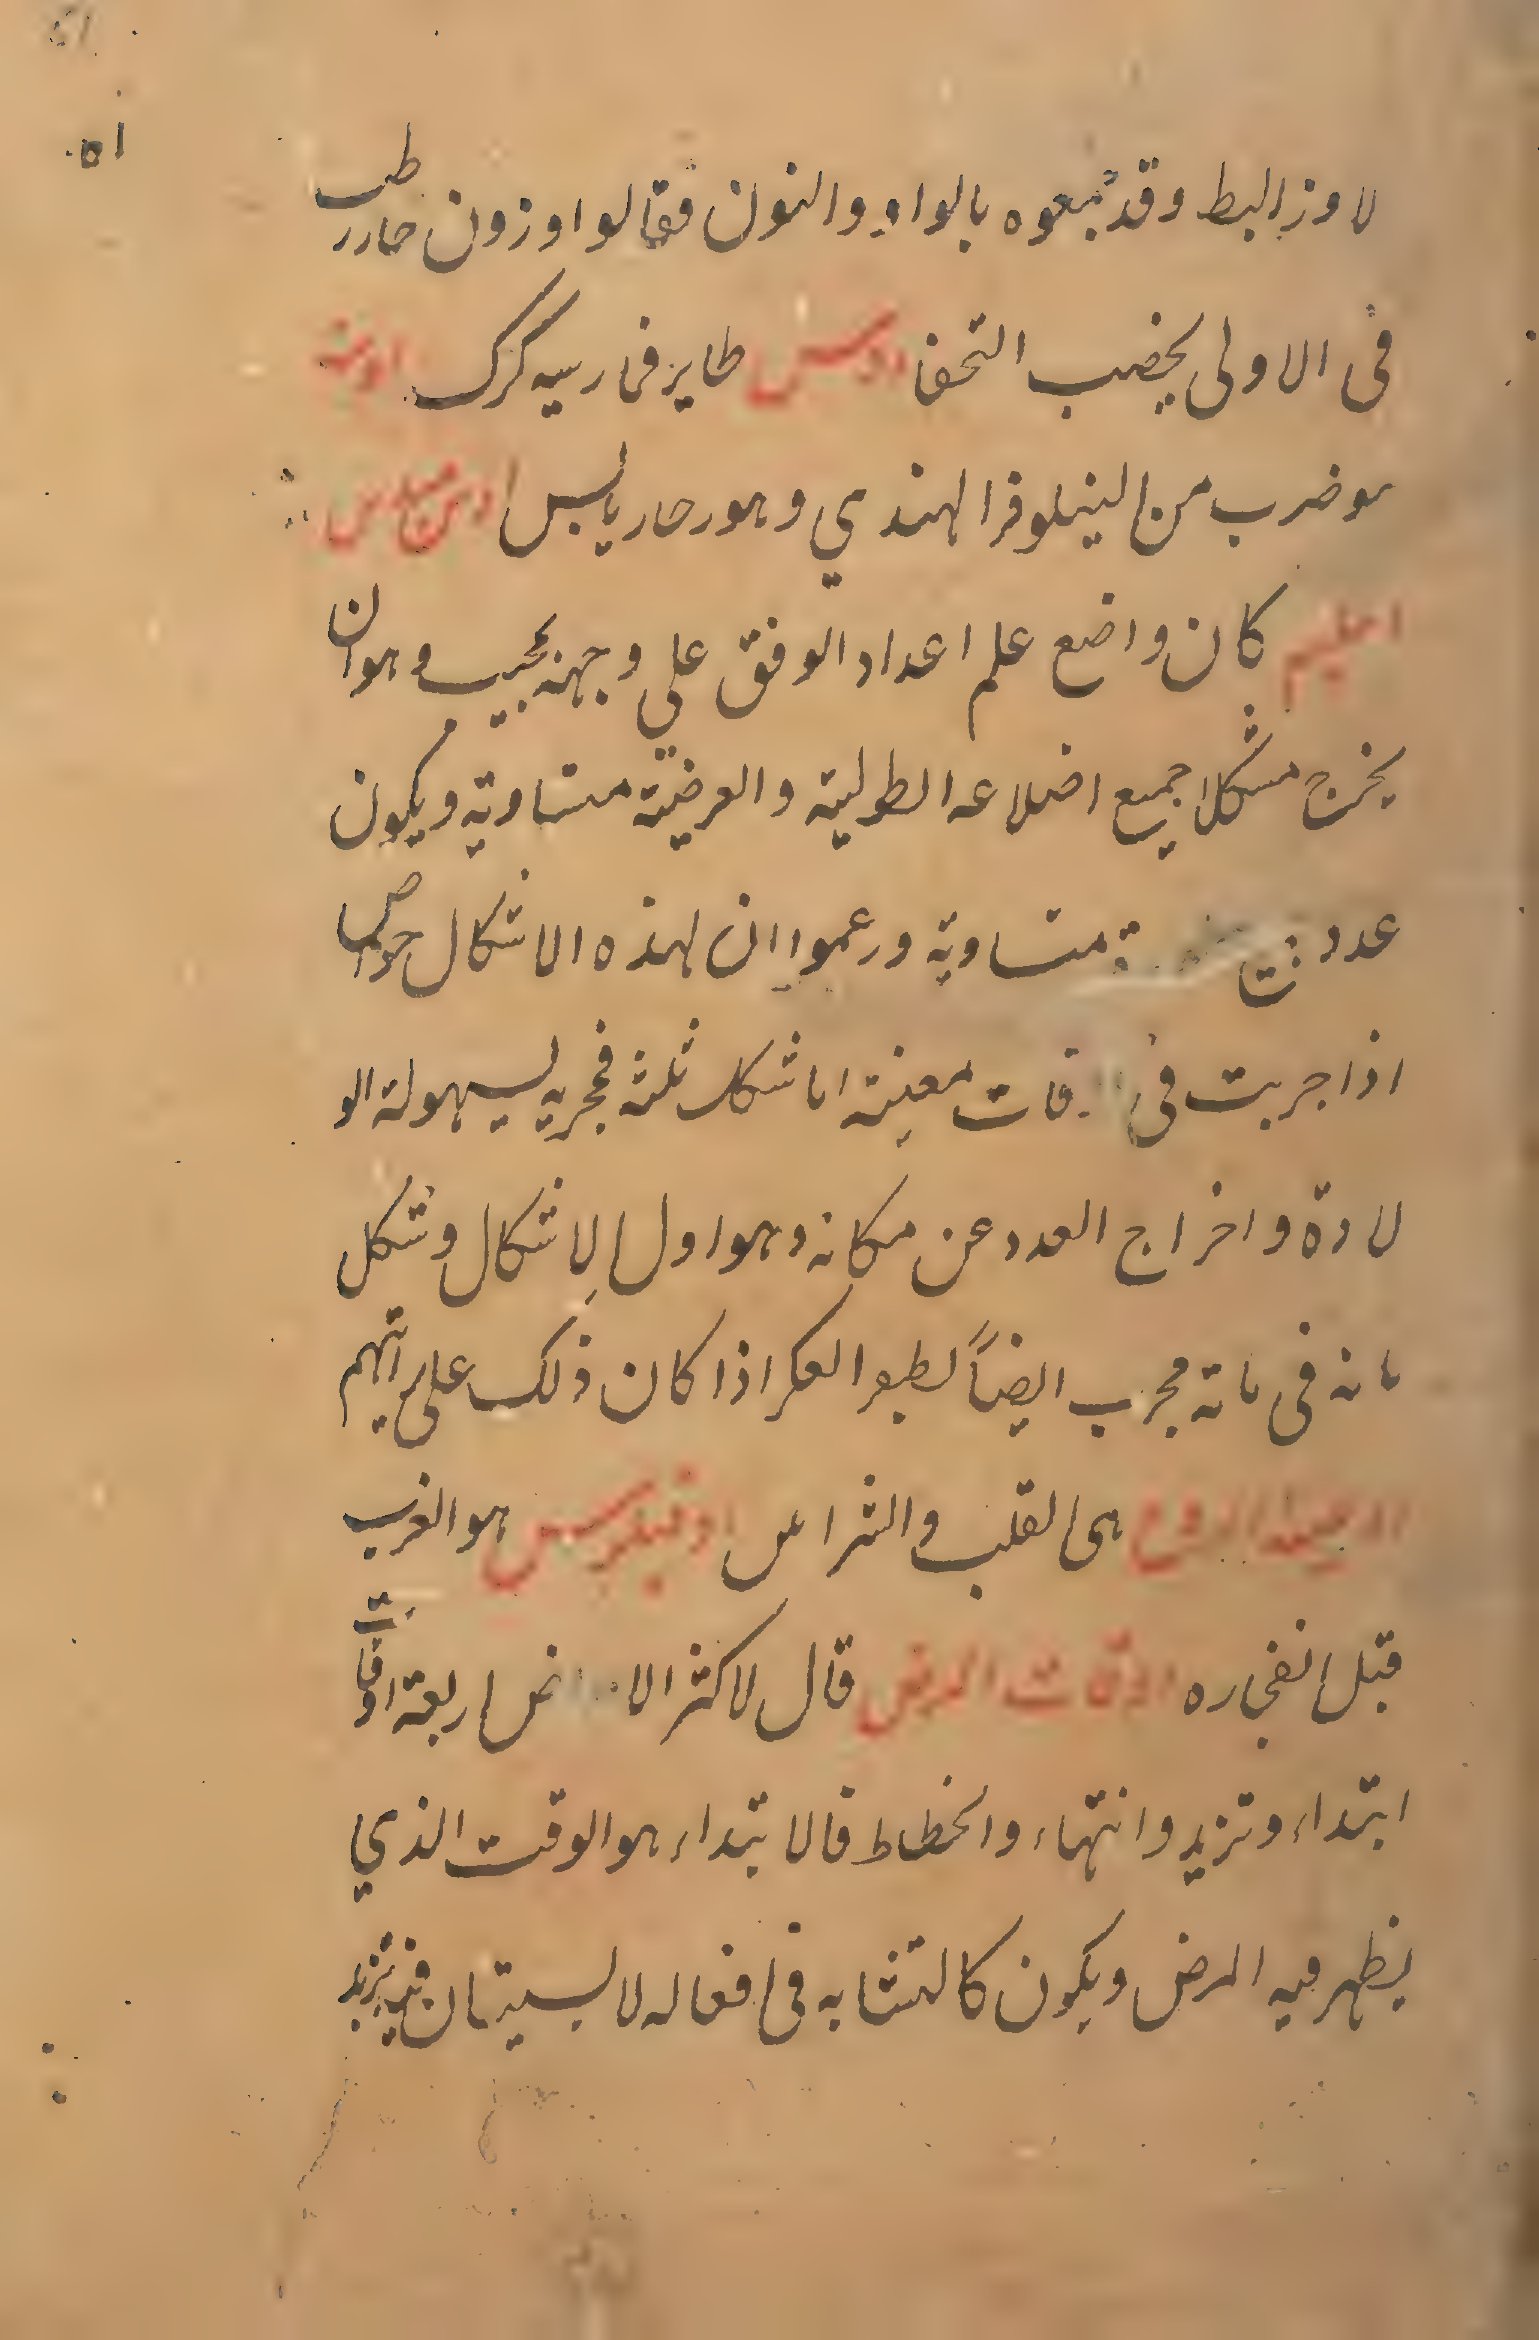 ٥١
لاوز البط وقد جمعوه بالواو والنون فقالوا اوزون حار رطب
فى الاولى يخصب النحفا طاير فارسيه كرك
هو ضرب من النيلوفر الهندي وهو حار يابس
كان واضع علم اعداد الوفق على وجهة عجيب وهو ان
يخرج مشكلا جميع اضلاعه الطولية والعرضية متساوية ويكون
عدد متساوية وزعموا ان لهذه الاشكال خواص
اذا جربت فى معينة اما شكل ثلثة فجربه لسهولة الو
لادة واخراج العدد عن مكانه وهو اول الاشكال وشكل
مائة فى مائة مجرب ايضاً اذا كان ذلك على
هى القلب والشراس هو الغرب
قبل انفجاره اوقات المرض قال لاكثر الامراض اربعة اوقات
ابتداء وتزيد وانتهاء وانحطاط فالابتداء هو الوقت الذي
يظهر فيه المرض ويكون كالمتشابه فى افعاله لا يستبان فيه تزيد